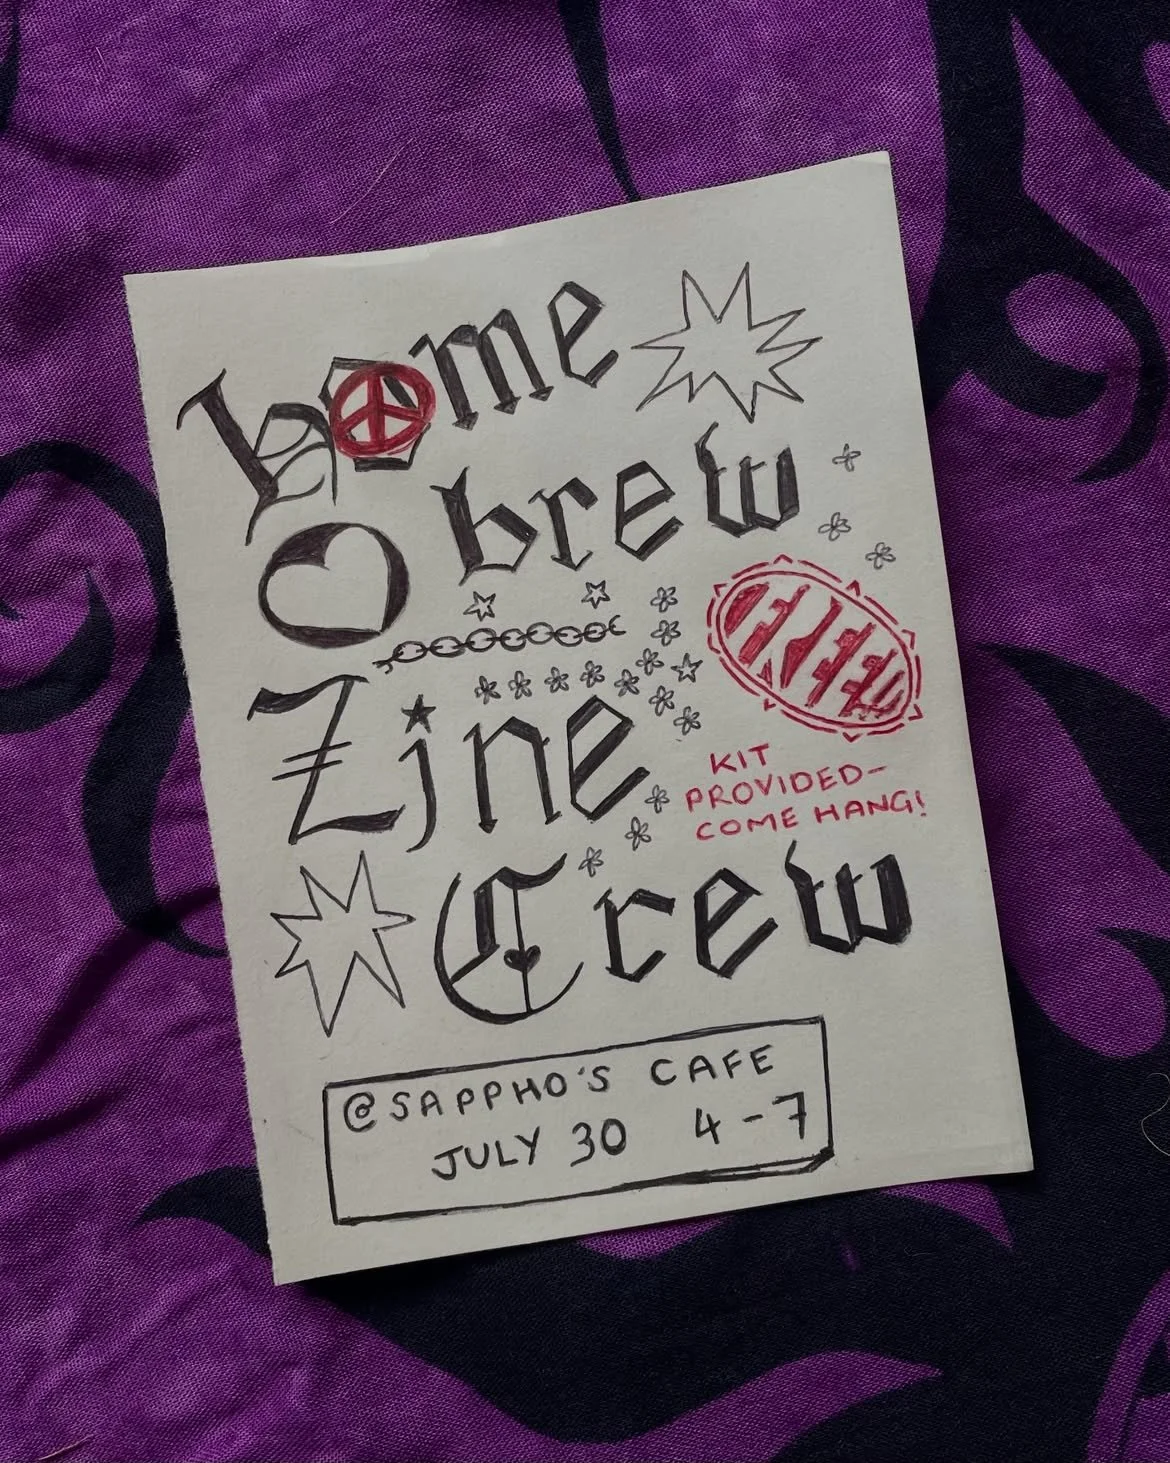 home
brew
FREE
Zine
KIT
PROVIDED-
COME HANG!
Crew
@SAPPHO'S CAFE
JULY 30 4-7